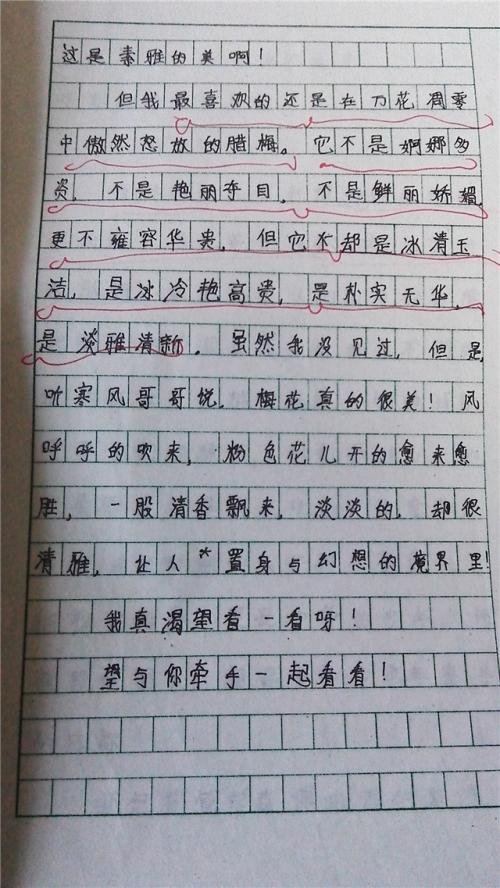 这是素雅的美啊！
但我最喜欢的还是在万花凋零
中傲然怒放的腊梅。它不是婀娜多
姿，不是艳丽夺目，不是鲜丽娇媚，
更不雍容华贵，但它不却是冰清玉
洁，是冰冷艳高贵，是朴实无华，
是淡雅清新。虽然我没见过，但是，
听寒风哥哥说，梅花真的很美！风
呼呼的吹来，粉色花儿开的愈来愈
胜，一股清香飘来，淡淡的，却很
清雅，让人*置身与幻想的境界里！
我真渴望看一看呀！
望与你牵手一起看看！